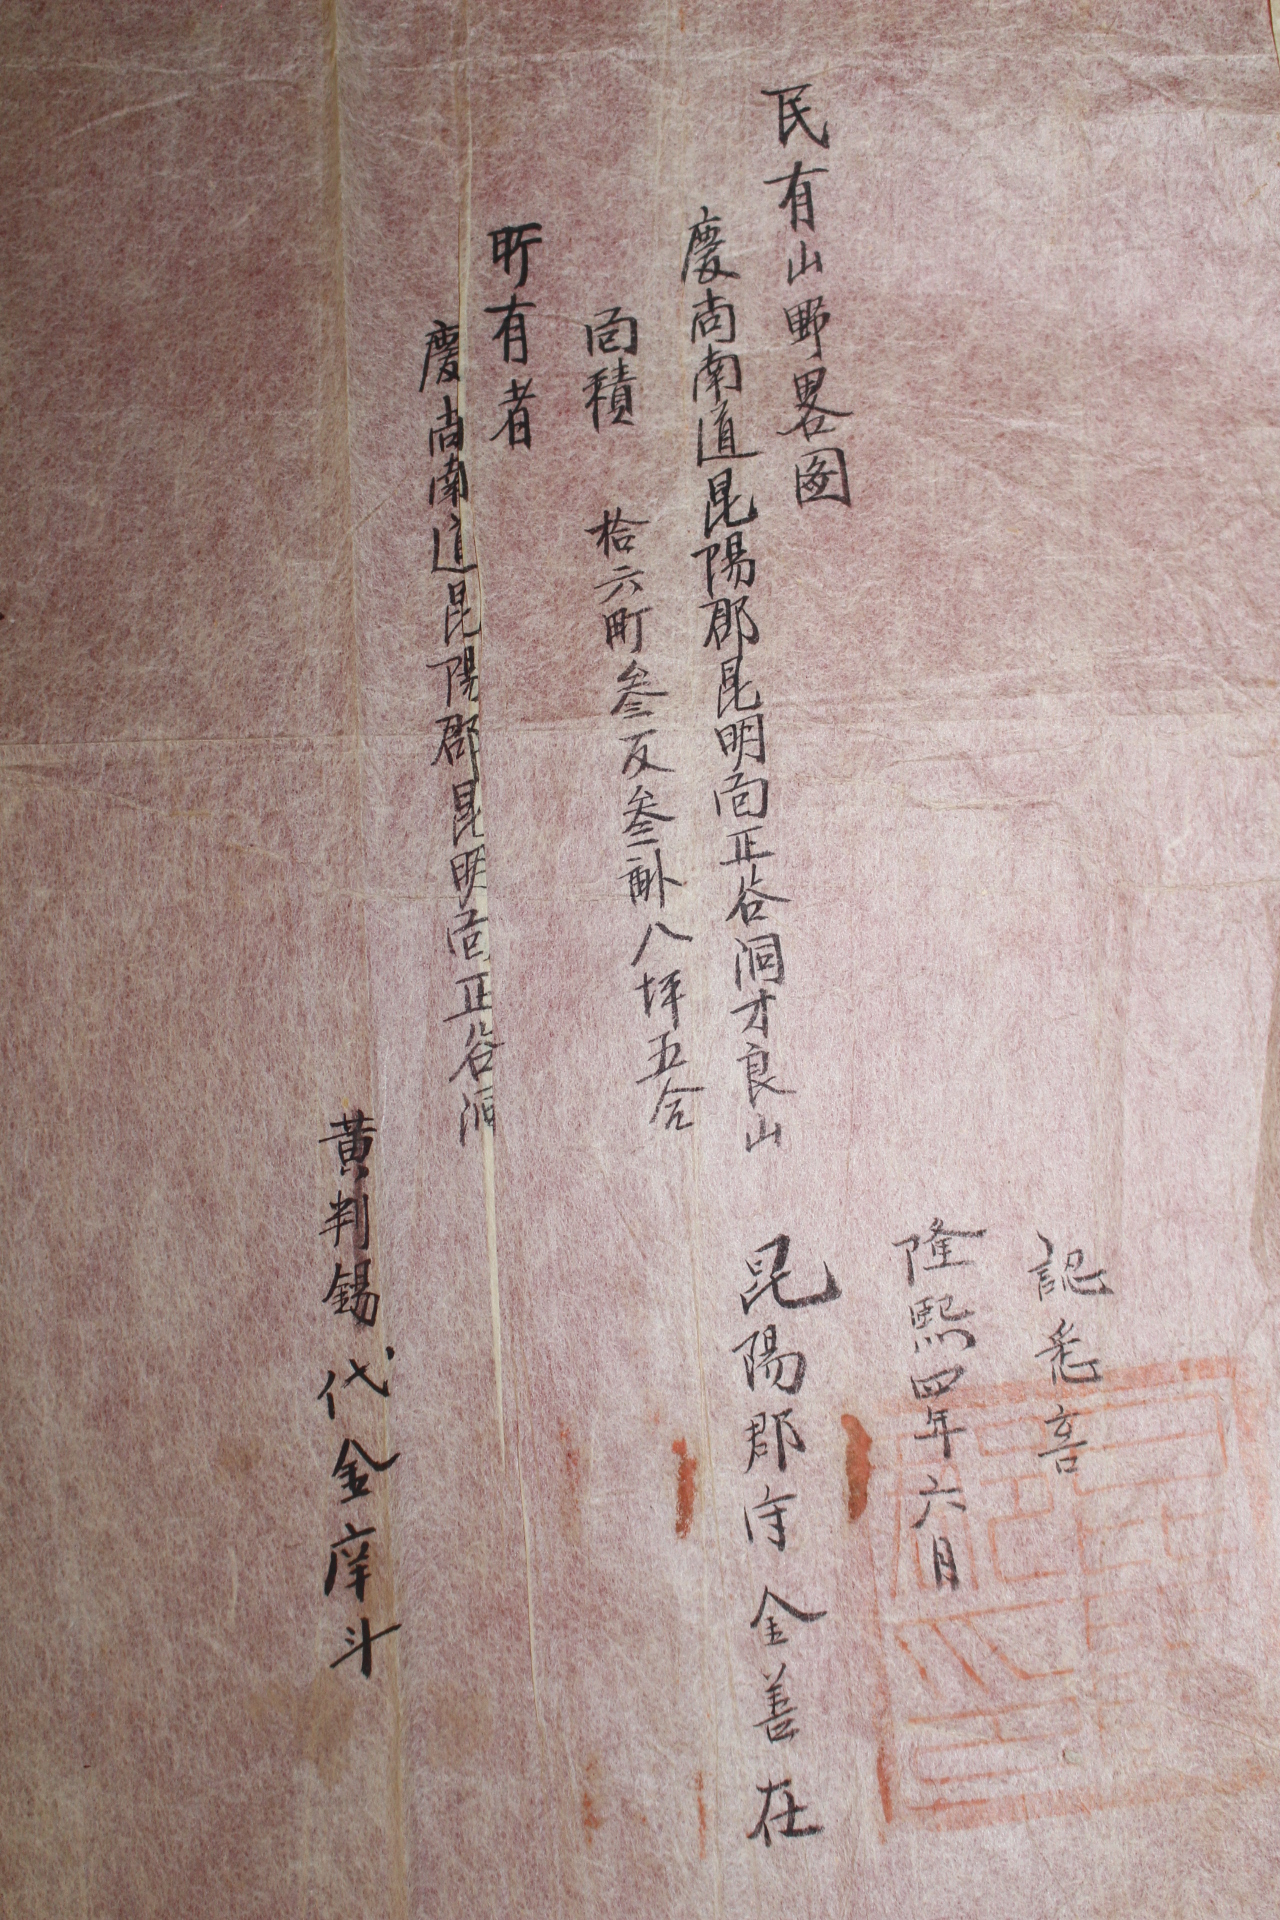 認悉
隆熙四年六月
民有山野畧圖
昆陽郡守金善在
慶尚南道昆陽郡昆明面正谷洞才良山
面積 拾六町叁反叁畝八坪五合
所有者
慶尚南道昆陽郡昆明面正谷洞
黃判錫代金庠斗